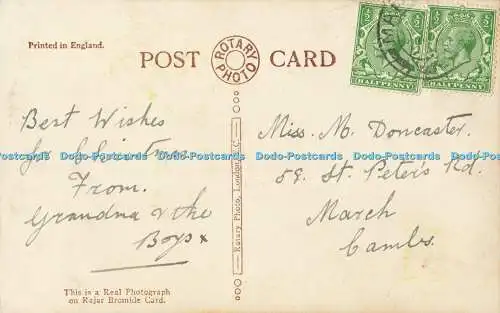 Printed in England.
POST CARD
ROTARY PHOTO
½ ½ ½ ½
HALFPENNY HALFPENNY
Best Wishes
for Christmas
From.
Grandma & the
Boys x
Miss. M. Doncaster.
58. St. Peters Rd.
March
Cambs.
Rotary Photo, London, E.C.
This is a Real Photograph
on Rajar Bromide Card.
Dodo-Postcards Dodo-Postcards Dodo-Postcards Dodo-Postcards Dodo-Postcards